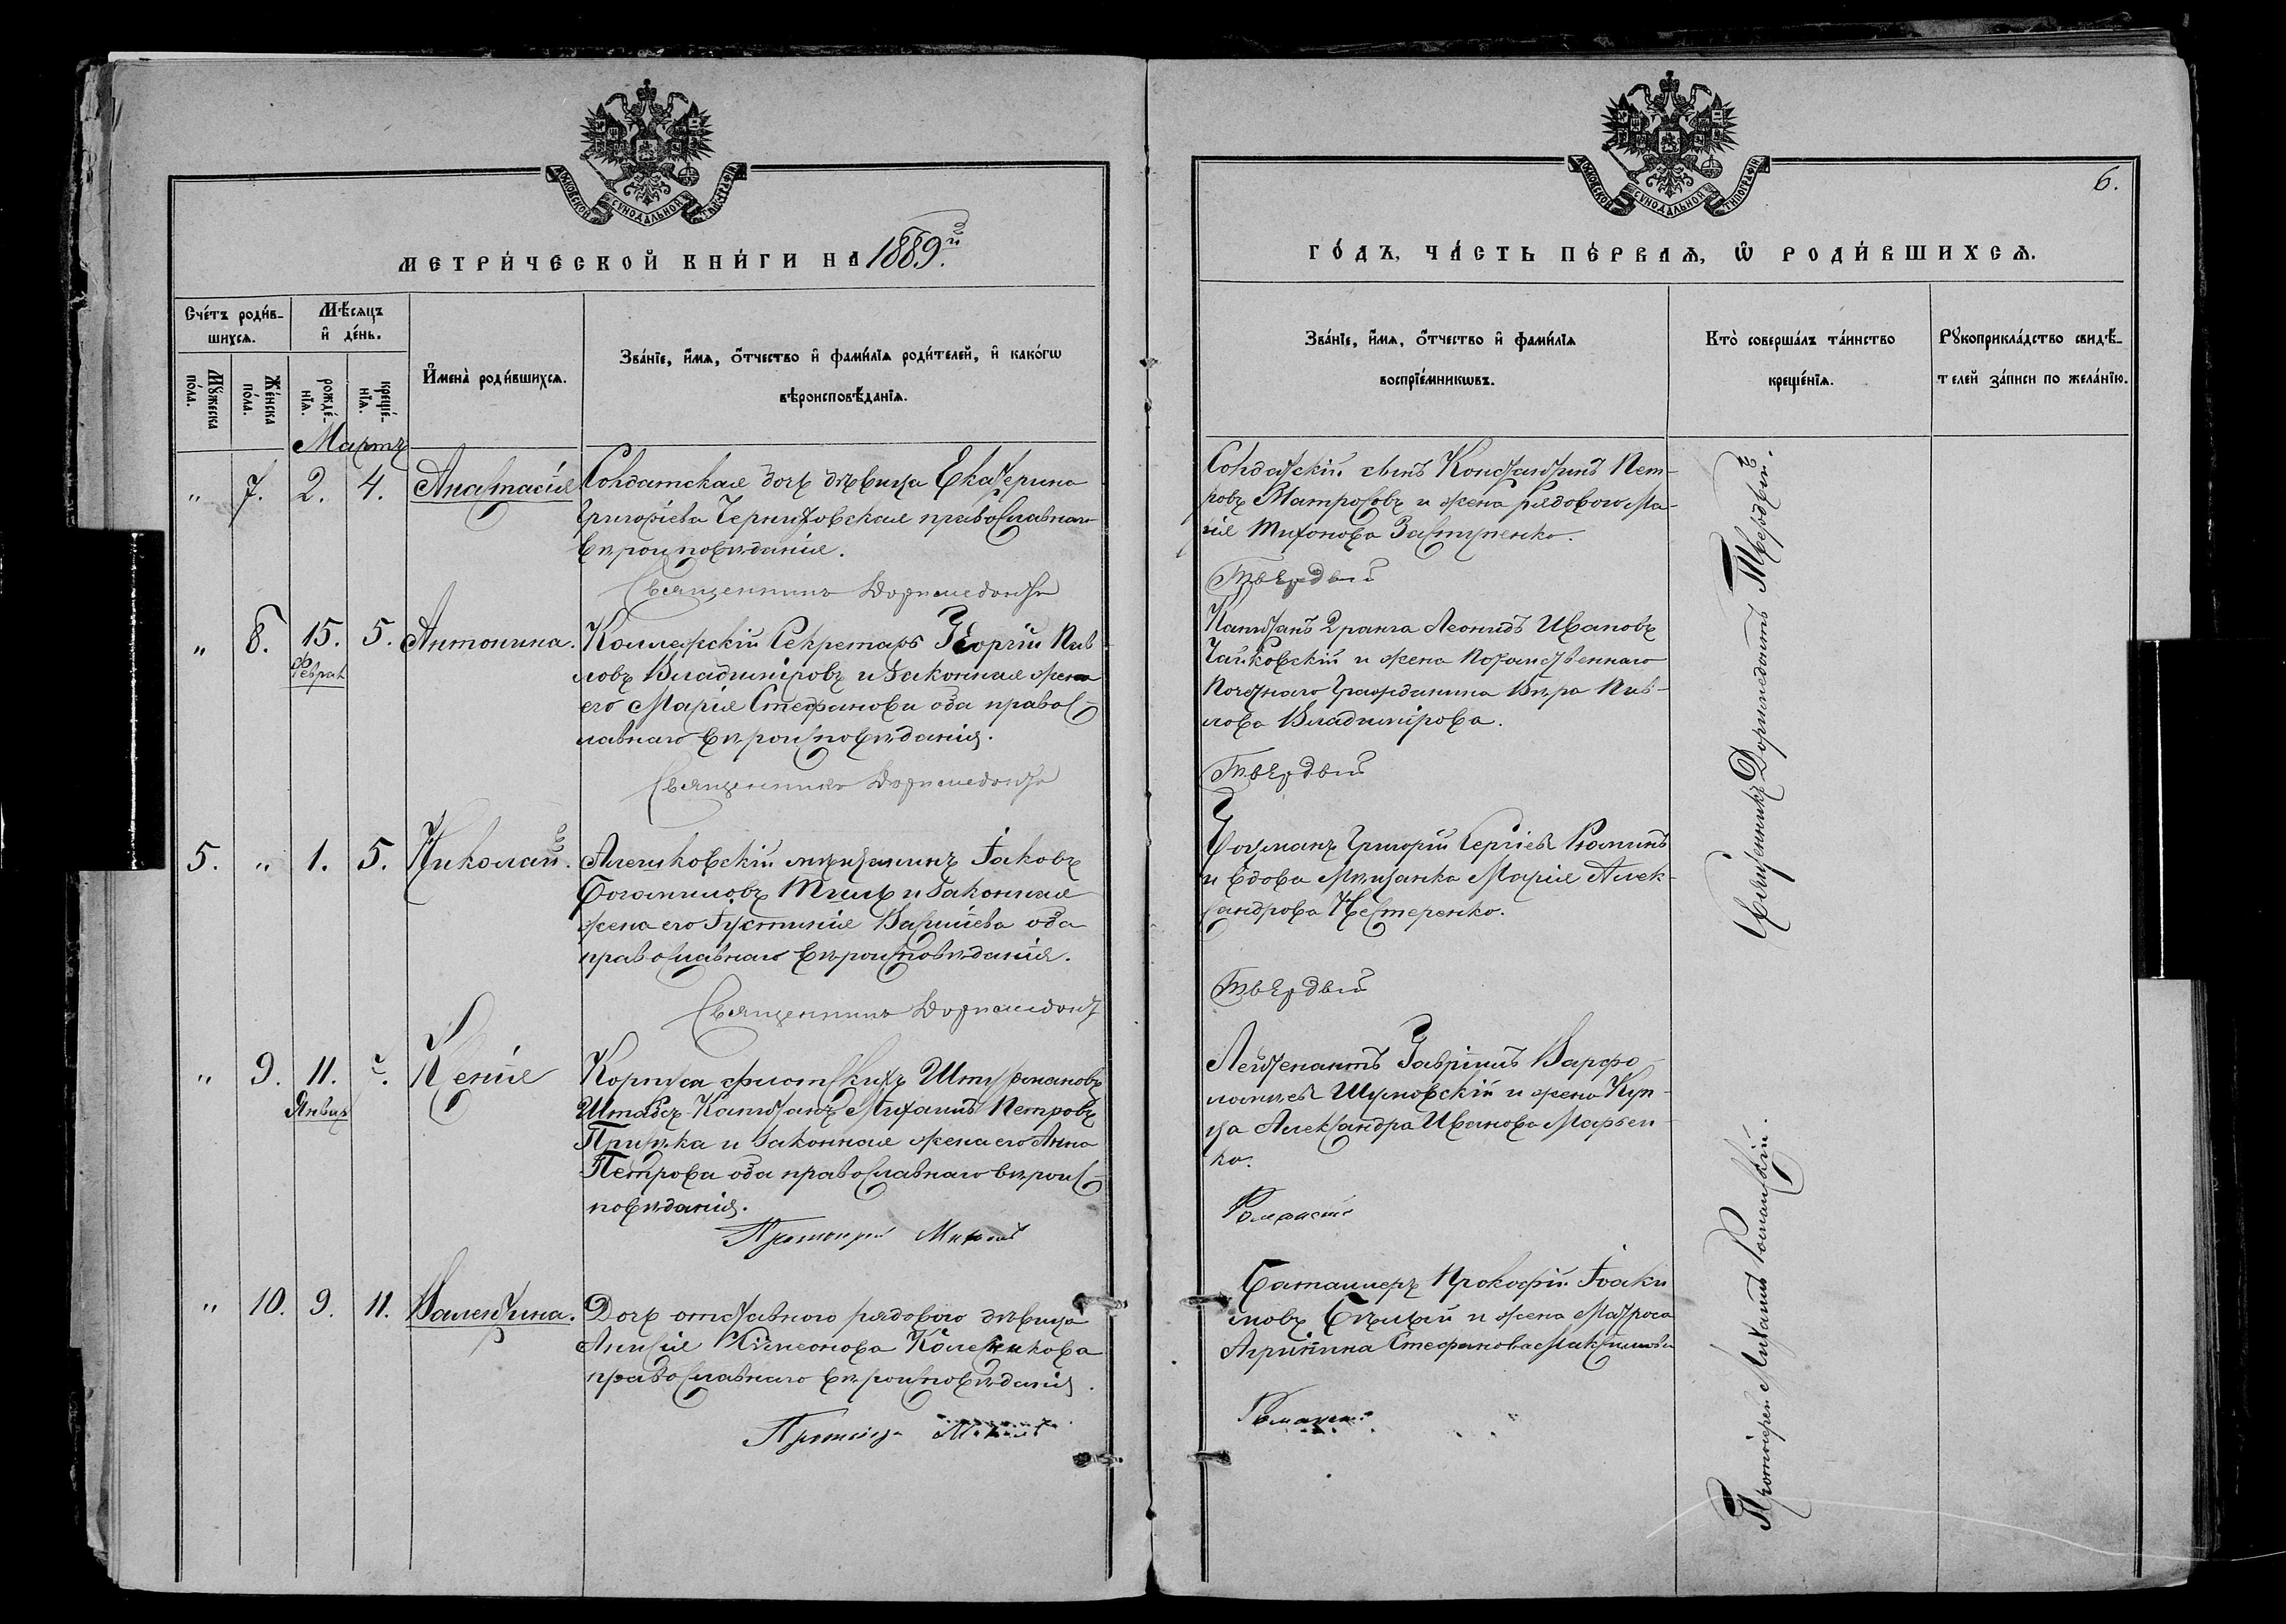 МОСКОВСКОЙ СѴНОДАЛЬНОЙ ТИПОГРАФІИ
МЕТРИ́ЧЕСКОЙ КНИ́ГИ НА 1889й
Сче́тъ роди́в-
шихсѧ.
Мѣ́сѧцъ
и҆ де́нь.
Мꙋ́жеска
по́ла.
Же́нска
по́ла.
рожде́-
нїѧ.
креще́-
нїѧ.
И҆мена̀ роди́вшихсѧ.
Зва́нїе, и҆́мѧ, ѻ҆́тчество и҆ фами́лїѧ роди́телей, и҆ како́гѡ
вѣроисповѣ́данїѧ.
Мартъ
" 7. 2. 4. Анастасія
Солдатская дочь дѣвица Екатерина
Григоріева Черниховская православнаго
вѣроисповѣданія.
Священникъ Дормедонтъ
" 8. 15. 5. Антонина.
Феврал
Коллежскій Секретарь Георгій Пав
ловъ Владиміровъ и законная жена
его Марія Стефанова оба правос-
лавнаго вѣроисповѣданія.
Священникъ Дормедонтъ
5. " 1. 5. Николай.
Алешковскій мѣщанинъ Іаковъ
законная
жена его Іустинія оба
православнаго вѣроисповѣданія.
Священникъ Дормедонт
" 9. 11. Ксенія
Январ
Корпуса флотскихъ Штурмановъ
Штабсъ-Капитанъ Михаилъ Петровъ
и законная жена его Анна
Петрова оба православнаго вѣроис-
повѣданія.
Протоиерей Михаилъ
" 10. 9. 11. Валентина.
Дочь отставного рядового дѣвица
Анисія Колесникова
православнаго вѣроисповѣданія.
Протоиер Михаилъ
МОСКОВСКОЙ СѴНОДАЛЬНОЙ ТИПОГРАФІИ
6.
ГО́ДЪ, ЧА́СТЬ ПЕ́РВАѦ, Ѽ РОДИ́ВШИХСѦ.
Зва́нїе, и҆́мѧ, ѻ҆́тчество и҆ фами́лїѧ
воспрїе́мникѡвъ.
Кто̀ соверша́лъ та́инство
креще́нїѧ.
Рꙋкоприкла́дство свидѣ́-
телей за́писи по жела́нїю.
Солдатскій сынъ Константинъ Пет-
ровъ Матросовъ и жена рядового Ма-
рія Тихонова Заступенко.
Твердый
Капитанъ 2 ранга Леонидъ Ивановъ
Чайковскій и жена Потомственнаго
Почотнаго Гражданина Вѣра Пав-
лова Владимірова.
Твердый
Боцманъ Григорій Сергіевъ
и вдова мѣщанка Марія Алек-
сандрова Нестеренко.
Твердый
Лейтенантъ Гавріилъ Варфо
ломеевъ Шумовскій и жена Куп-
ца Александра Иванова Марьен-
ко.
Романскій
Баталлеръ Прокофій Іоаки
мовъ Бѣлый и жена Матроса
Агрипина Стефанова Максимова
Романскій
Священникъ Дормедонтъ Твердый.
Протоіерей Михаилъ Романскій.